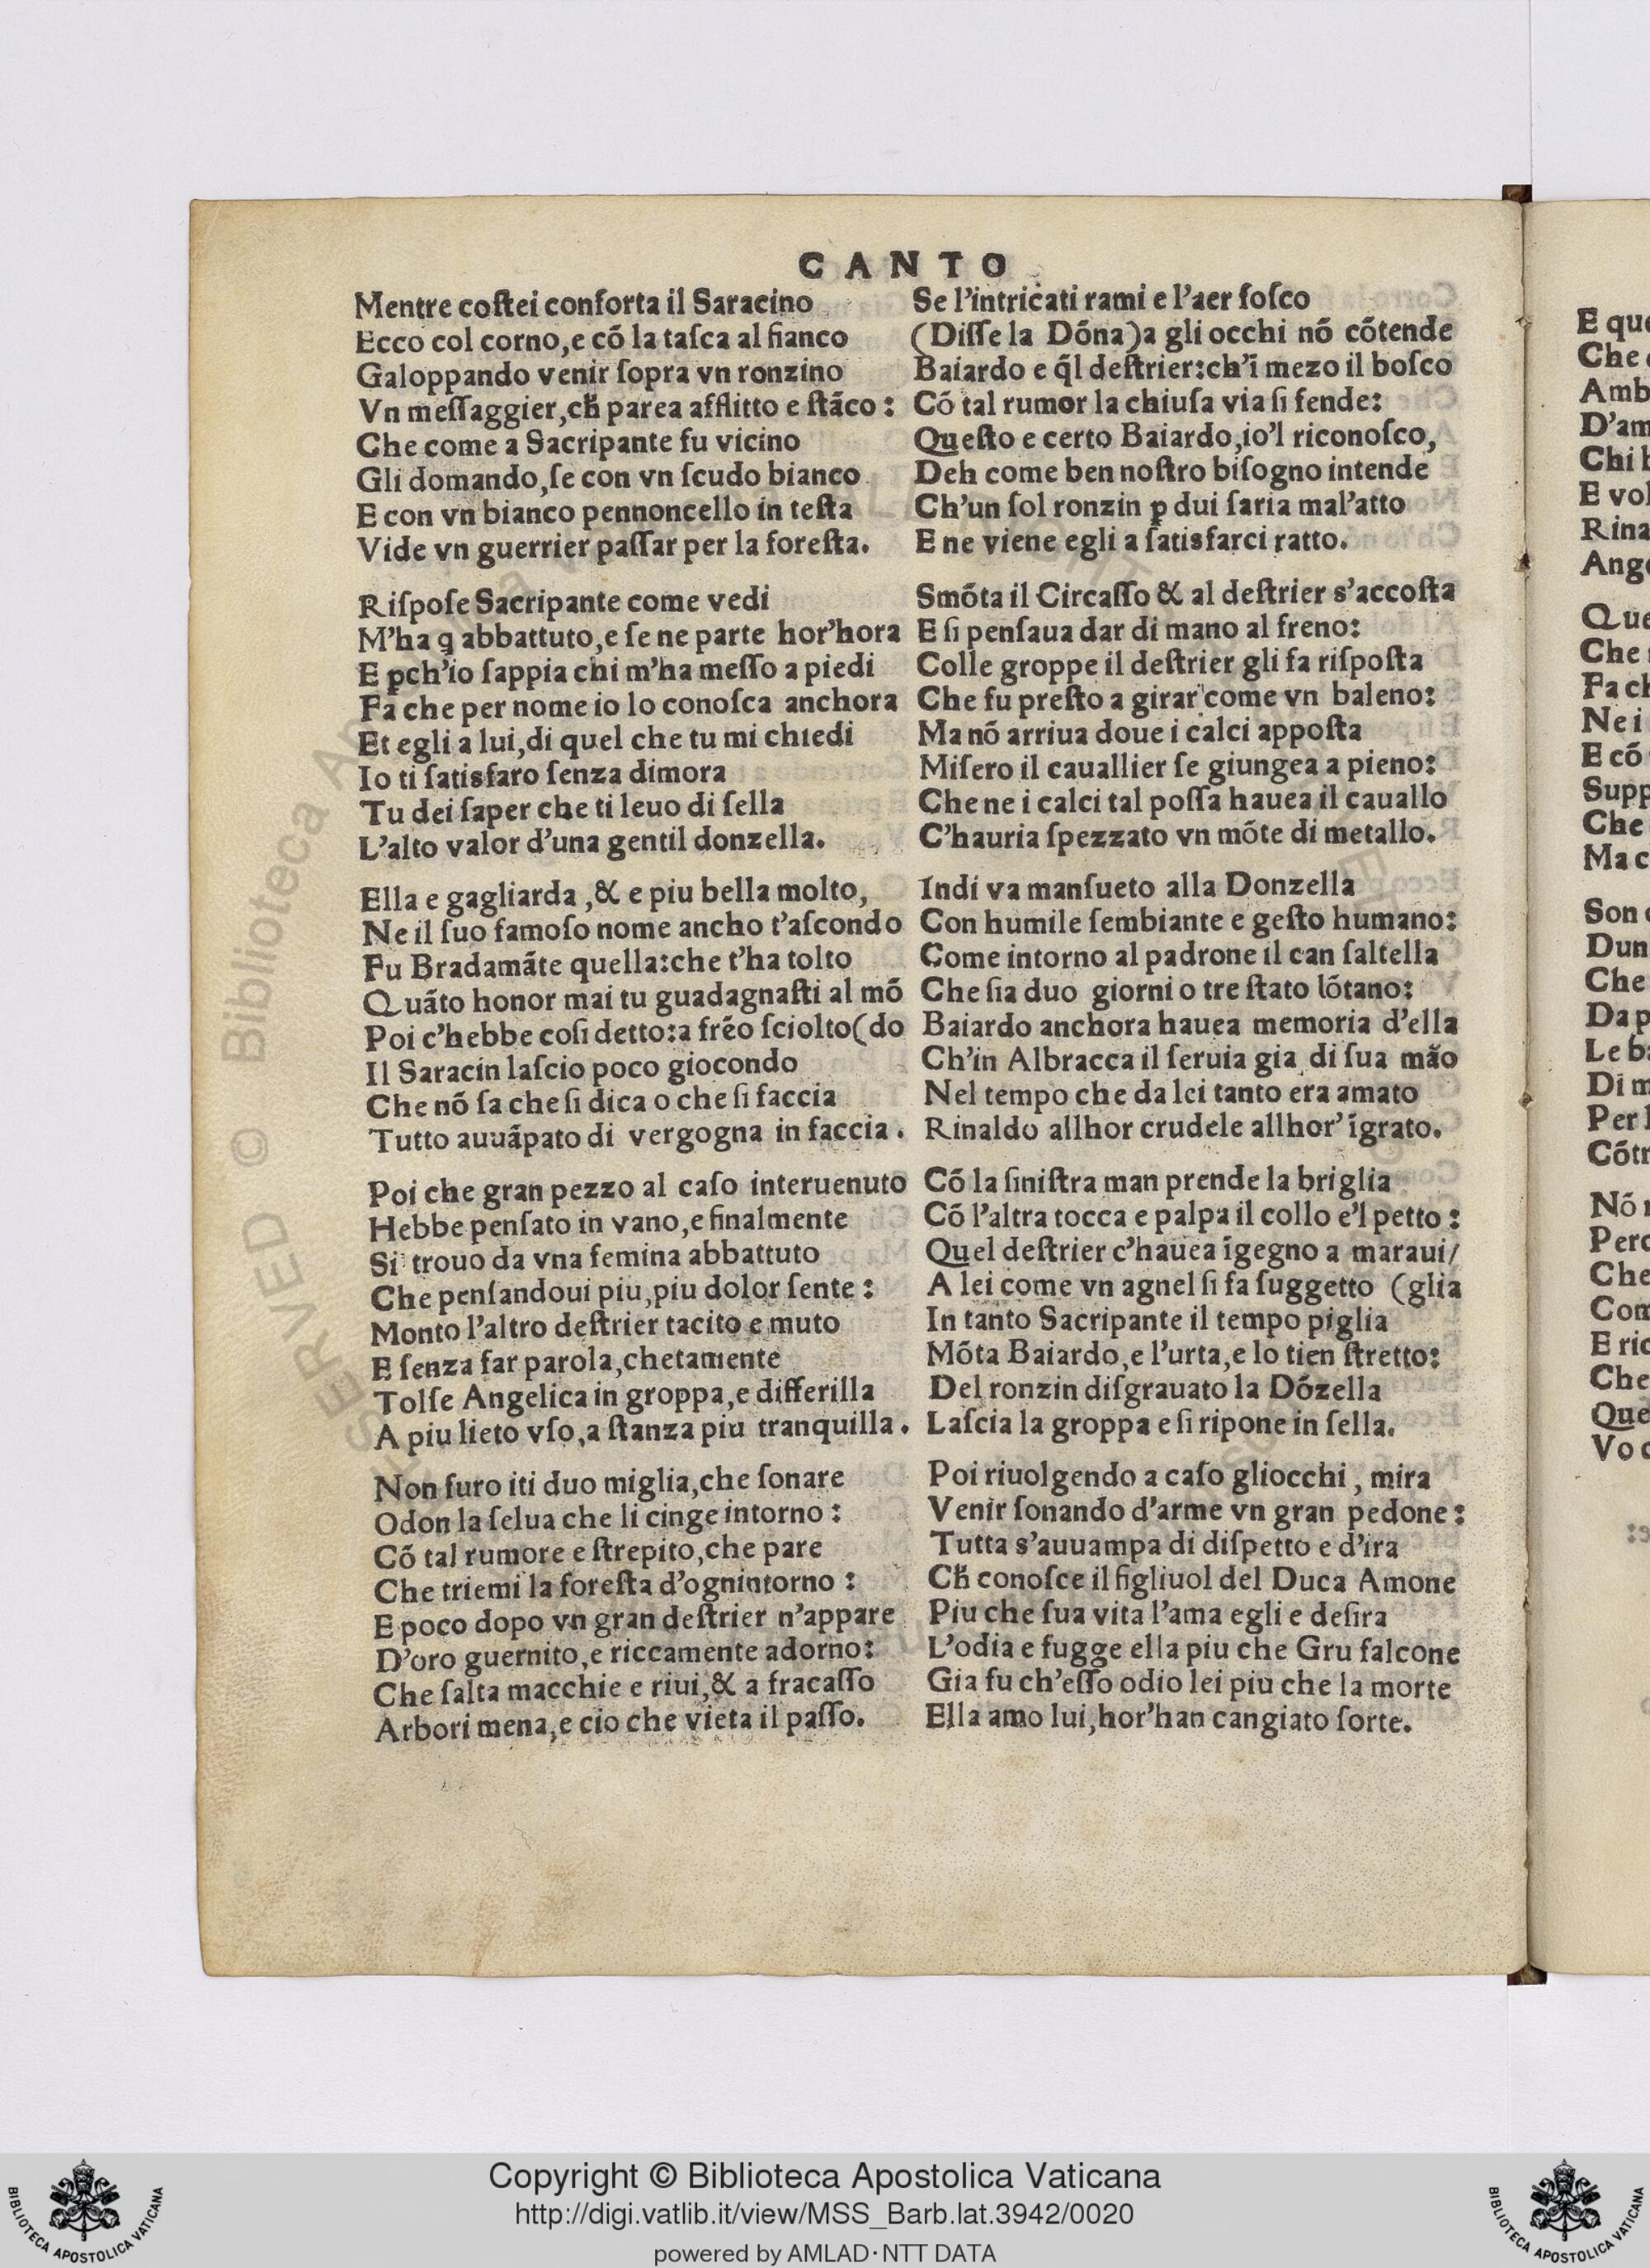 CANTO
Mentre coſtei conforta il Saracino
Ecco col corno,e cõ la taſca al fianco
Galoppando venir ſopra vn ronzino
Vn meſſaggier,ch̃ parea afflitto e ſtãco:
Che come a Sacripante fu vicino
Gli domando,ſe con vn ſcudo bianco
E con vn bianco pennoncello in teſta
Vide vn guerrier paſſar per la foreſta.
Riſpoſe Sacripante come vedi
M'ha q abbattuto,e ſe ne parte hor'hora
E ꝑch'io ſappia chi m'ha meſſo a piedi
Fa che per nome io lo conoſca anchora
Et egli a lui,di quel che tu mi chiedi
Io ti ſatisfaro ſenza dimora
Tu dei ſaper che ti leuo di ſella
L'alto valor d'una gentil donzella.
Ella e gagliarda ,& e piu bella molto,
Ne il ſuo famoſo nome ancho t'aſcondo
Fu Bradamãte quella:che t'ha tolto
Quãto honor mai tu guadagnaſti al mõ
Poi c'hebbe coſi detto:a frẽo ſciolto(do
Il Saracin laſcio poco giocondo
Che nõ ſa che ſi dica o che ſi faccia
Tutto auuãpato di vergogna in faccia.
Poi che gran pezzo al caſo interuenuto
Hebbe penſato in vano,e finalmente
Si trouo da vna femina abbattuto
Che penſandoui piu,piu dolor ſente:
Monto l'altro deſtrier tacito e muto
E ſenza far parola,chetamente
Tolſe Angelica in groppa,e differilla
A piu lieto vſo,a ſtanza piu tranquilla.
Non furo iti duo miglia,che ſonare
Odon la ſelua che li cinge intorno:
Cõ tal rumore e ſtrepito,che pare
Che triemi la foreſta d'ognintorno:
E poco dopo vn gran deſtrier n'appare
D'oro guernito,e riccamente adorno:
Che ſalta macchie e riui,& a fracaſſo
Arbori mena,e cio che vieta il paſſo.
Se l'intricati rami e l'aer foſco
(Diſſe la Dõna)a gli occhi nõ cõtende
Baiardo e q̃l deſtrier:ch'ĩ mezo il boſco
Cõ tal rumor la chiuſa via ſi fende:
Queſto e certo Baiardo,io'l riconoſco,
Deh come ben noſtro biſogno intende
Ch'un ſol ronzin ꝑ dui ſaria mal'atto
E ne viene egli a ſatisfarci ratto.
Smõta il Circaſſo & al deſtrier s'accoſta
E ſi penſaua dar di mano al freno:
Colle groppe il deſtrier gli fa riſpoſta
Che fu preſto a girar come vn baleno:
Ma nõ arriua doue i calci appoſta
Miſero il cauallier ſe giungea a pieno:
Che ne i calci tal poſſa hauea il cauallo
C'hauria ſpezzato vn mõte di metallo.
Indi va manſueto alla Donzella
Con humile ſembiante e geſto humano:
Come intorno al padrone il can ſaltella
Che ſia duo giorni o tre ſtato lõtano:
Baiardo anchora hauea memoria d'ella
Ch'in Albracca il ſeruia gia di ſua mão
Nel tempo che da lei tanto era amato
Rinaldo allhor crudele allhor'ĩgrato.
Cõ la ſiniſtra man prende la briglia
Cõ l'altra tocca e palpa il collo e'l petto:
Quel deſtrier c'hauea ĩgegno a maraui/
A lei come vn agnel ſi fa ſuggetto (glia
In tanto Sacripante il tempo piglia
Mõta Baiardo,e l'urta,e lo tien ſtretto:
Del ronzin diſgrauato la Dõzella
Laſcia la groppa e ſi ripone in ſella.
Poi riuolgendo a caſo gliocchi, mira
Venir ſonando d'arme vn gran pedone:
Tutta s'auuampa di diſpetto e d'ira
Ch̃ conoſce il figliuol del Duca Amone
Piu che ſua vita l'ama egli e deſira
L'odia e fugge ella piu che Gru falcone
Gia fu ch'eſſo odio lei piu che la morte
Ella amo lui,hor'han cangiato ſorte.
E que
Che
Amb
D'am
Chi
E vol
Rina
Ange
Que
Che
Fa ch
Ne i
E cõ
Supp
Che
Ma c
Son
Dun
Che
Da p
Le ba
Di m
Per
Cõtr
Nõ
Perc
Che
Com
E ric
Che
Que
Vo
Copyright © Biblioteca Apostolica Vaticana
http://digi.vatlib.it/view/MSS_Barb.lat.3942/0020
powered by AMLAD·NTT DATA
BIBLIOTECA APOSTOLICA VATICANA
BIBLIOTECA APOSTOLICA VATICANA